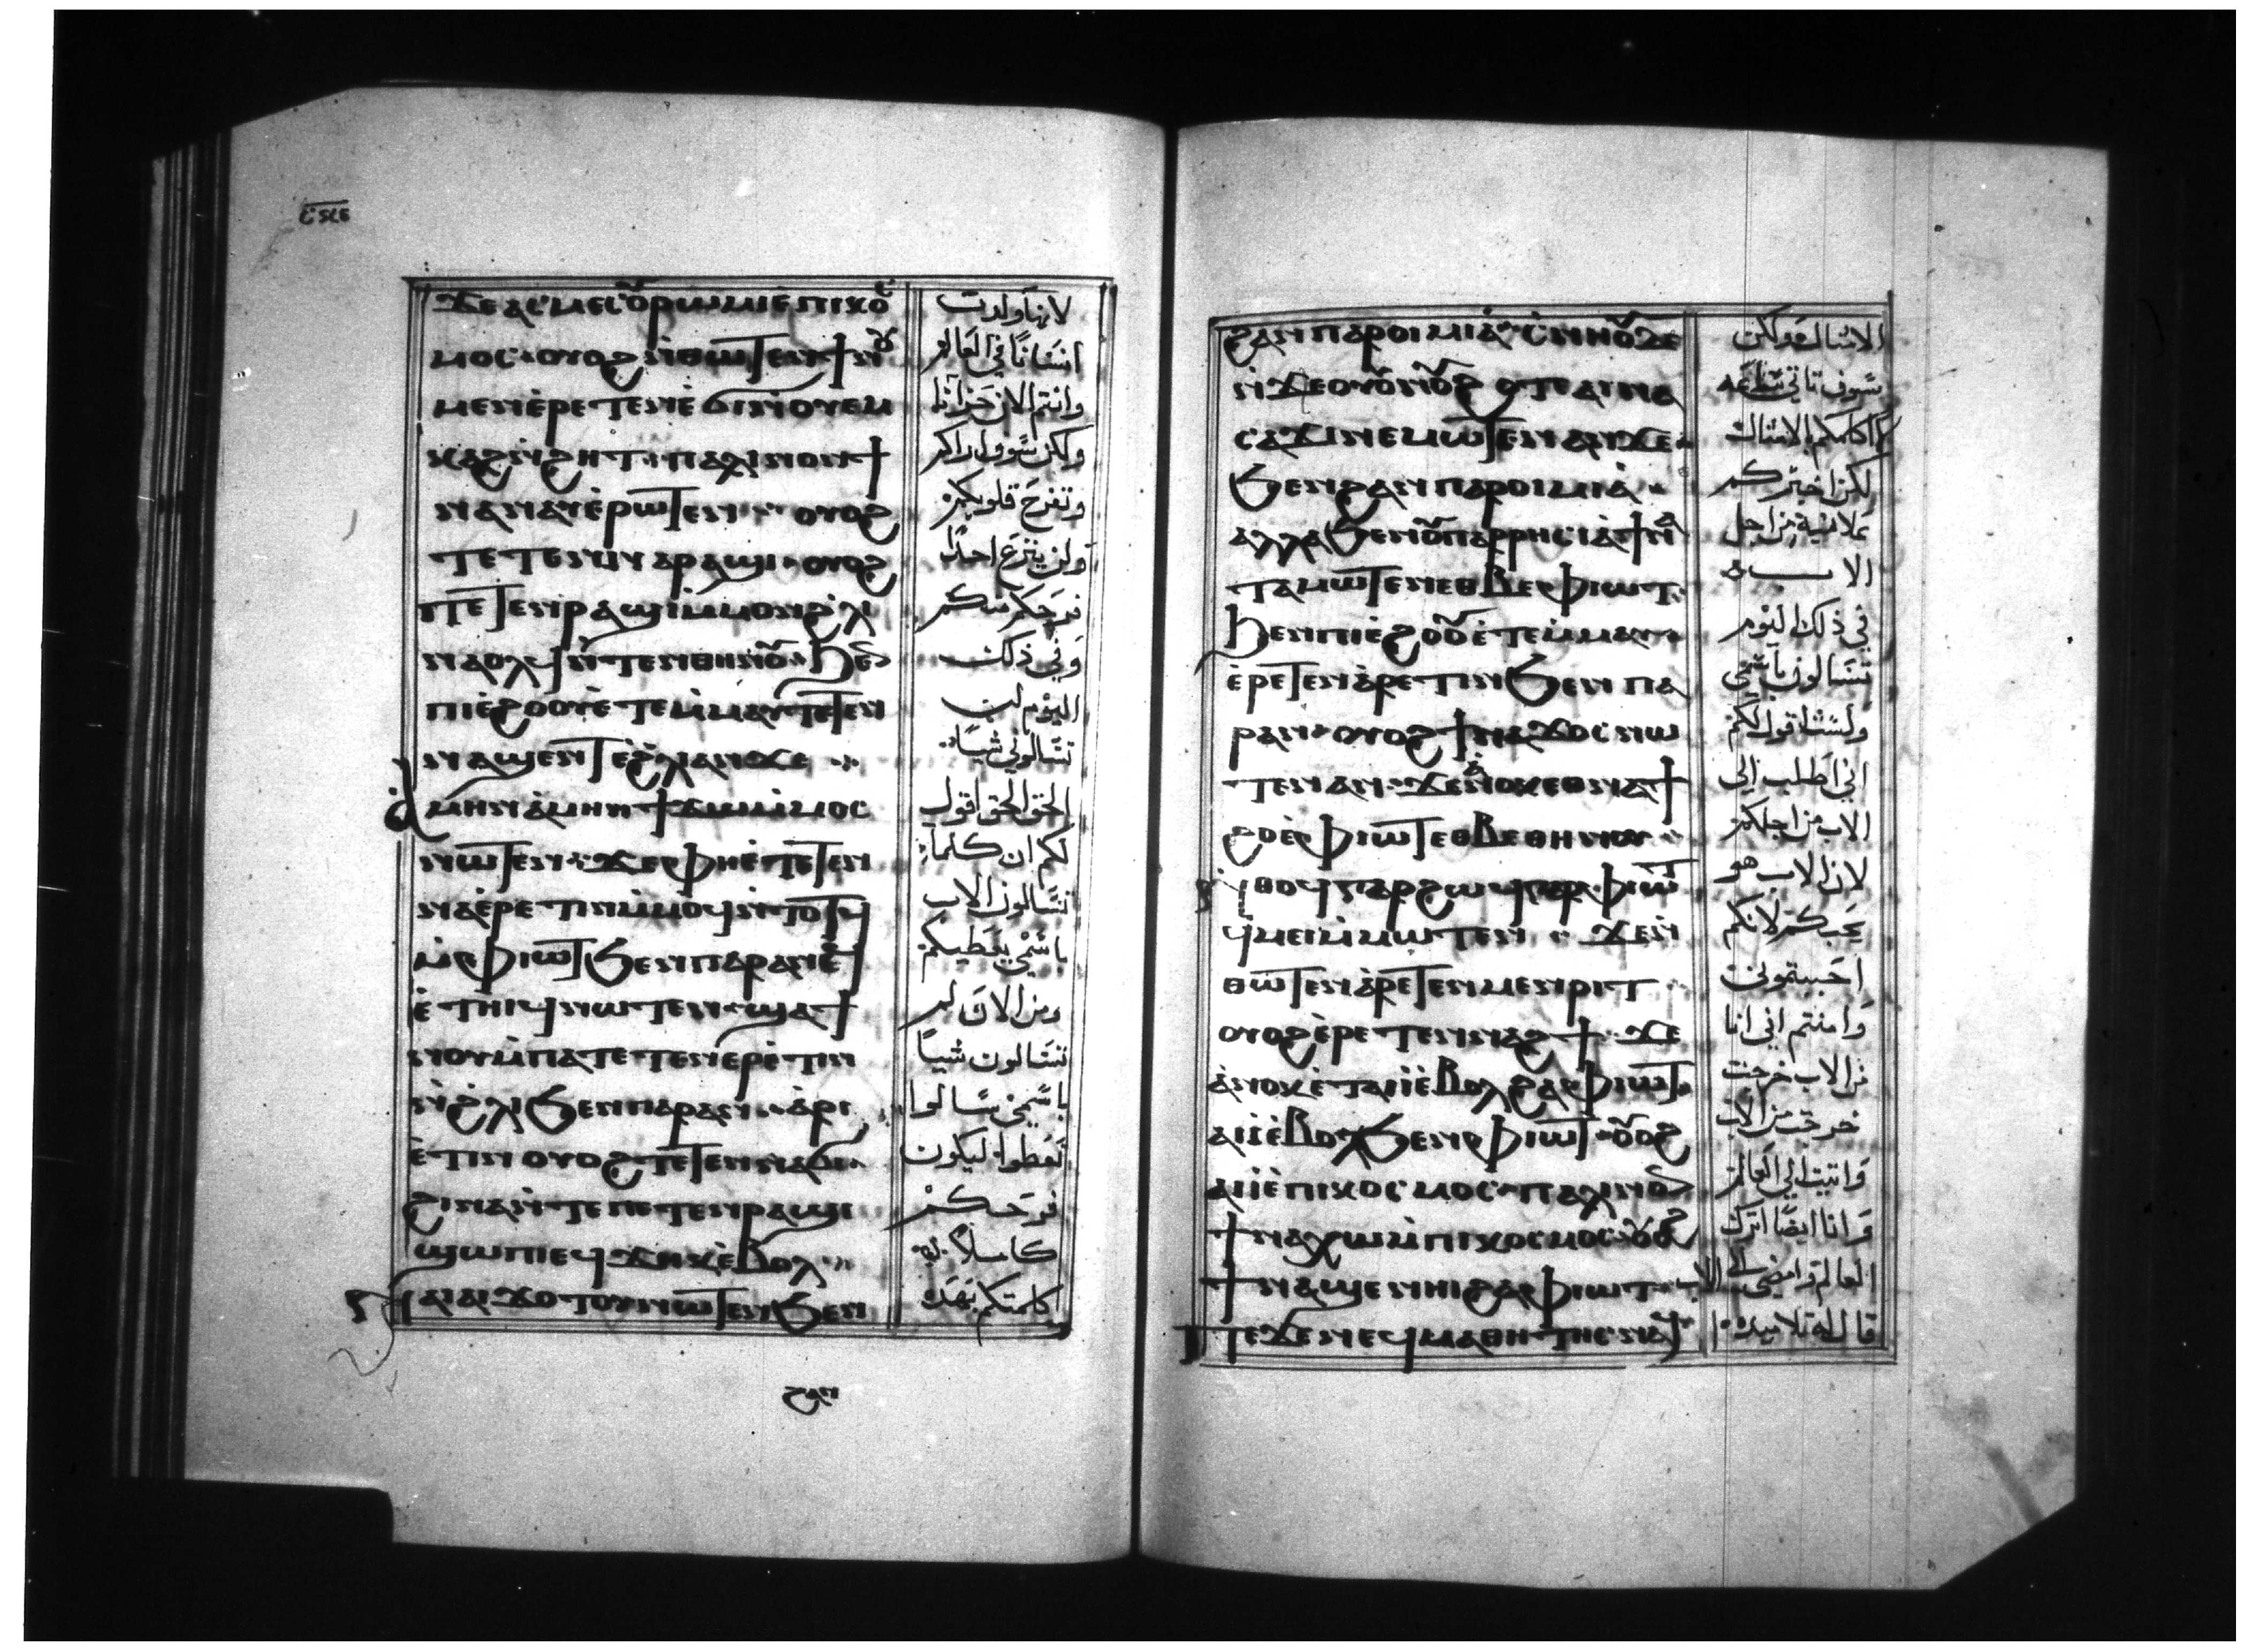 ϫⲉ ⲁⲥⲙⲉⲥ ⲟⲩⲣⲱⲙⲓ ⲉ̀ⲡⲓⲕⲟⲥ
ⲙⲟⲥ· ⲟⲩⲟϩ ⲛ̀ⲑⲱⲧⲉⲛ ϯⲛⲟⲩ
ⲙⲉⲛ ⲉ̀ⲣⲉⲧⲉⲛⲉ̀ϭⲓ ⲛ̀ⲟⲩⲉⲙ
ⲕⲁϩ ⲛ̀ϩⲏⲧ· ⲡⲁⲗⲓⲛ ⲟⲛ ϯ
ⲛⲁⲛⲁⲩ ⲉ̀ⲣⲱⲧⲉⲛ·· ⲟⲩⲟϩ
ⲡⲉⲧⲉⲛⲣⲁϣⲓ ⲙ̀ⲙⲟⲛ ϩ̀ⲗⲓ
ⲛⲁⲟⲗϥ ⲛ̀ⲧⲉⲛⲑⲏⲛⲟⲩ·· ϧⲉⲛ
ⲡⲓⲉ̀ϩⲟⲟⲩ ⲉ̀ⲧⲉⲙ̀ⲙⲁⲩ ⲧⲉⲧⲉⲛ
ⲛⲁϣⲉⲛⲧ ⲉ̀ϩ̀ⲗⲓ ⲁⲛ ϫⲉ ··
ⲁ̀ⲙⲏⲛ ⲁ̀ⲙⲏⲛ ϯϫⲱ ⲙ̀ⲙⲟⲥ
ⲛⲱⲧⲉⲛ·· ϫⲉ ⲫⲏ ⲉ̀ⲧⲉⲧⲉⲛ
ⲛⲁⲉ̀ⲣⲉⲧⲓⲛ ⲙ̀ⲙⲟϥ ⲛ̀ⲧⲟⲧϥ
ⲙ̀ⲫⲓⲱⲧ ϧⲉⲛ ⲡⲁⲣⲁⲛ ⲉϥ
ⲉ̀ⲧⲏⲓϥ ⲛⲱⲧⲉⲛ· ϣⲁ ϯ
ⲛⲟⲩ ⲙ̀ⲡⲁⲧⲉⲧⲉⲛⲉⲣⲉ̀ⲧⲓⲛ
ⲛ̀ϩ̀ⲗⲓ ϧⲉⲛ ⲡⲁⲣⲁⲛ·· ⲁ̀ⲣⲓ
ⲉ̀ⲧⲓⲛ ⲟⲩⲟϩ ⲧⲉⲧⲉⲛⲛⲁϭⲓ··
ϩⲓⲛⲁ ⲛ̀ⲧⲉ ⲡⲉⲧⲉⲛⲣⲁϣⲓ
ϣⲱⲡⲓ ⲉϥϫⲏⲕ ⲉ̀ⲃⲟⲗ··
ⲛⲁⲓ ⲁⲓϫⲟⲧⲟⲩ ⲛⲱⲧⲉⲛ ϧⲉⲛ
ϩⲁⲛ
لانها ولدت
انسانا في العالم
وانتم الان حزانا
ولكن سوف اراكم
وتفرح قلوبكم
ولن ينزع احدا
فرحكم منكم
وفي ذلك
اليوم لن
تسالوني شيا
الحق الحق اقول
لكم ان كلما
تسالون الاب
باسمي يعطيكم
ومن الان لم
تسالون شيا
باسمي سالوا
تعطوا ليكون
فرحكم
كاملا
كلمتكم بهذه
ϩⲁⲛⲡⲁⲣⲟⲓⲙⲓⲁ̀· ⲥ̀ⲛⲏⲟⲩ ⲇⲉ
ⲛ̀ϫⲉ ⲟⲩⲟⲩⲛⲟⲩ ϩⲟⲧⲉ ⲁⲓⲛⲁ
ⲥⲁϫⲓ ⲛⲉⲙⲱⲧⲉⲛ ⲁⲛ ϫⲉ·
ϧⲉⲛ ϩⲁⲛⲡⲁⲣⲟⲓⲙⲓⲁ̀··
ⲁⲗⲗⲁ ϧⲉⲛ ⲟⲩⲡⲁⲣⲣⲏⲥⲓⲁ̀ ϯⲛⲁ
ⲧⲁⲙⲱⲧⲉⲛ ⲉⲑⲃⲉ ⲫⲓⲱⲧ··
ϧⲉⲛ ⲡⲓⲉ̀ϩⲟⲟⲩ ⲉ̀ⲧⲉⲙ̀ⲙⲁⲩ·
ⲉ̀ⲣⲉⲧⲉⲛⲁ̀ⲣⲉⲧⲓⲛ ϧⲉⲛ ⲡⲁ
ⲣⲁⲛ· ⲟⲩⲟϩ ϯⲛⲁϫⲟⲥ ⲛⲱ
ⲧⲉⲛ ⲁⲛ· ϫⲉ ⲁ̀ⲛⲟⲕ ⲉⲑⲛⲁϯ
ϩⲟ ⲉ̀ⲫⲓⲱⲧ ⲉⲑⲃⲉ ⲑⲏⲛⲟⲩ··
ⲛ̀ⲑⲟϥ ⲅⲁⲣ ϩⲱϥ ⲅⲁⲣ ⲫⲓⲱⲧ
ϥ̀ⲙⲉⲓ ⲙ̀ⲙⲱⲧⲉⲛ·· ϫⲉ ⲛ̀
ⲑⲱⲧⲉⲛ ⲁ̀ⲣⲉⲧⲉⲛⲙⲉⲛⲣⲓⲧ··
ⲟⲩⲟϩ ⲉ̀ⲣⲉⲧⲉⲛⲛⲁϩϯ·· ϫⲉ
ⲁ̀ⲛⲟⲕ ⲉ̀ⲧⲁⲓⲓ̀ ⲉ̀ⲃⲟⲗ ϩⲁ ⲫⲓⲱⲧ·
ⲁⲓⲓ̀ ⲉ̀ⲃⲟⲗ ϧⲉⲛ ⲫⲓⲱⲧ· ⲟⲩⲟϩ
ⲁⲓⲓ̀ ⲉ̀ⲡⲓⲕⲟⲥⲙⲟⲥ· ⲡⲁⲗⲓⲛ ⲟⲛ
ϯⲛⲁⲭⲱ ⲙ̀ⲡⲓⲕⲟⲥⲙⲟⲥ· ⲟⲩⲟϩ
ϯⲛⲁϣⲉⲛⲏⲓ ϩⲁ ⲫⲓⲱⲧ·
ⲡⲉϫⲉ ⲛⲉϥⲙⲁⲑⲏⲧⲏⲥ ⲛⲁϥ
الامثال ولكن
سوف تاتي ساعه
لا اكلمكم بالامثال
لكن اخبركم
علانية من اجل
الاب
في ذلك اليوم
تسالون باسمي
ولست اقول لكم
اني اطلب الي
الاب من اجلكم
لان الاب هو
يحبكم لانكم
احببتموني
وامنتم اني انا
من الاب خرجت
خرجت من الاب
واتيت الي العالم
وانا ايضا اترك
العالم وامضي الي الاب
قال له تلاميذه